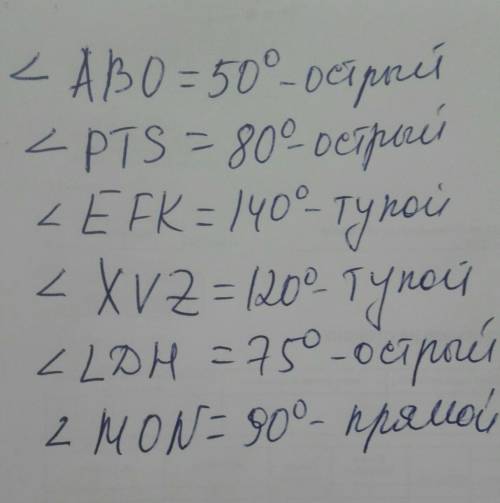 ∠ ABO = 50° - острый
∠ PTS = 80° - острый
∠ EFK = 140° - тупой
∠ XVZ = 120° - тупой
∠ LDH = 75° - острый
∠ MON = 90° - прямой